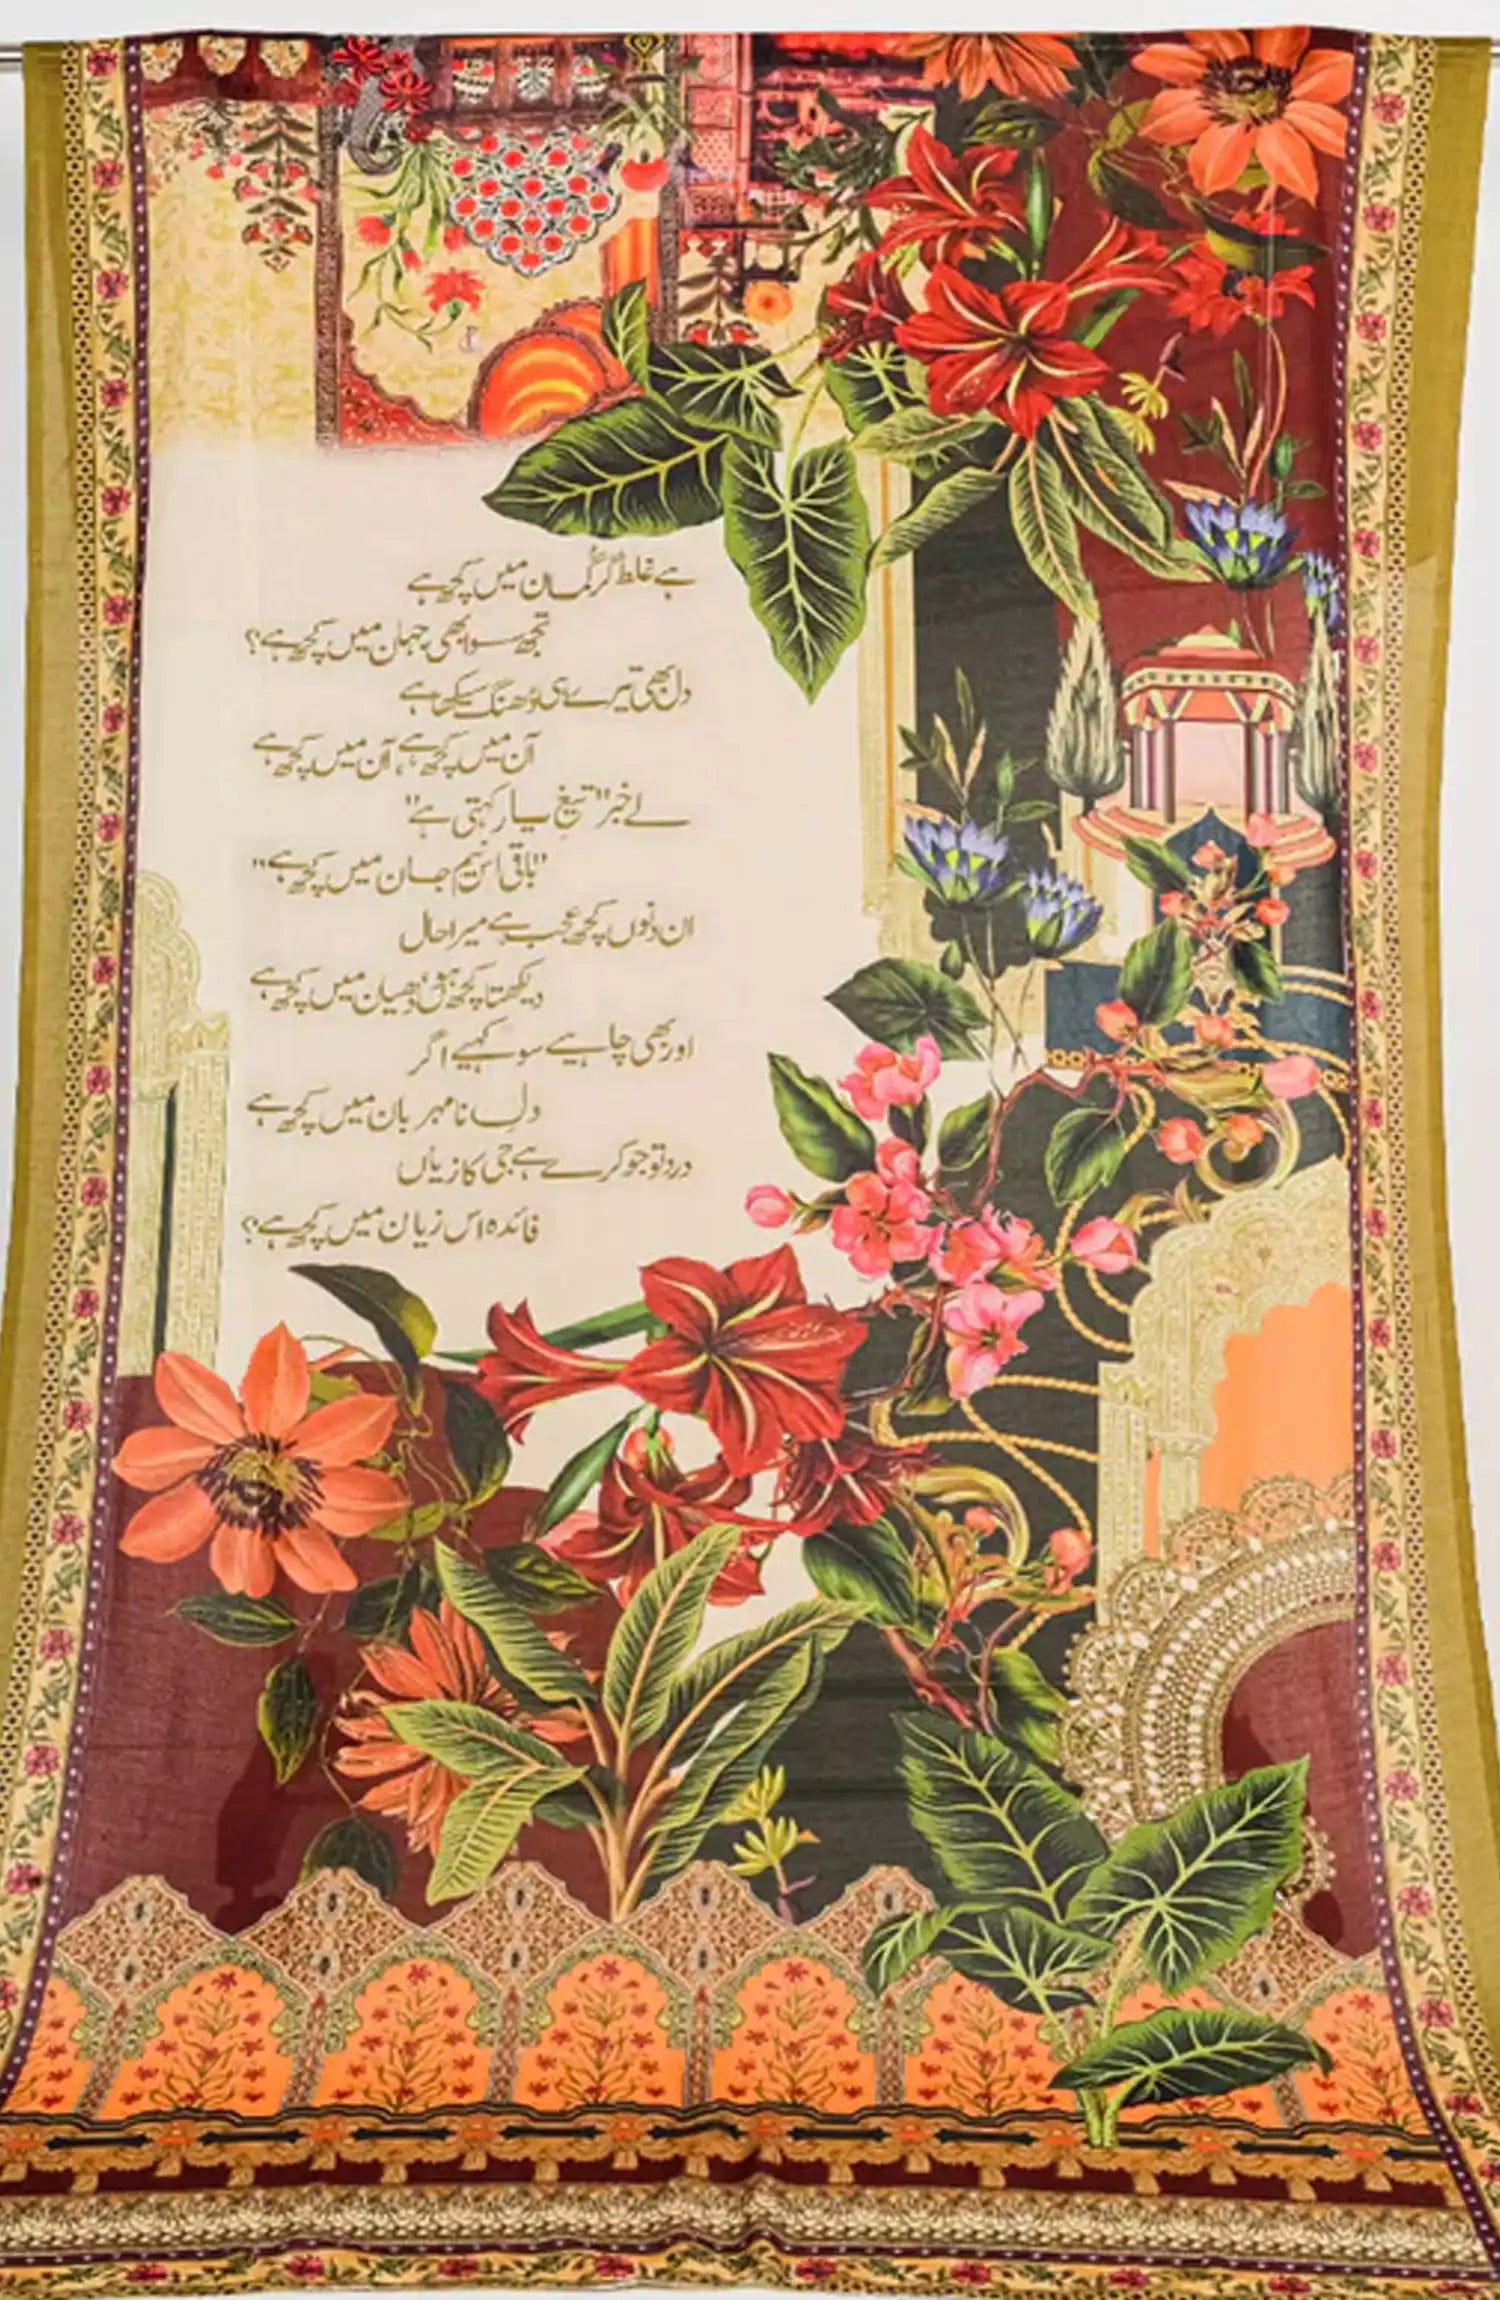 ہے غلط گر گمان میں کچھ ہے
تجھ سوا بھی جہان میں کچھ ہے؟
دل بھی تیرے ہی ڈھنگ سیکھا ہے
آن میں کچھ ہے، آن میں کچھ ہے
لے خبر "تیغِ یار کہتی ہے"
"باقی اس نیم جان میں کچھ ہے"
ان دنوں کچھ عجب ہے میرا حال
دیکھتا کچھ ہوں، دھیان میں کچھ ہے
اور بھی چاہیے سو کہیے اگر
دلِ نامہربان میں کچھ ہے
درد تو جو کرے ہے جی کا زیاں
فائدہ اس زیان میں کچھ ہے؟